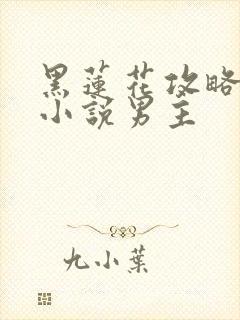 黑蓮花攻略
小說男主
九小葉